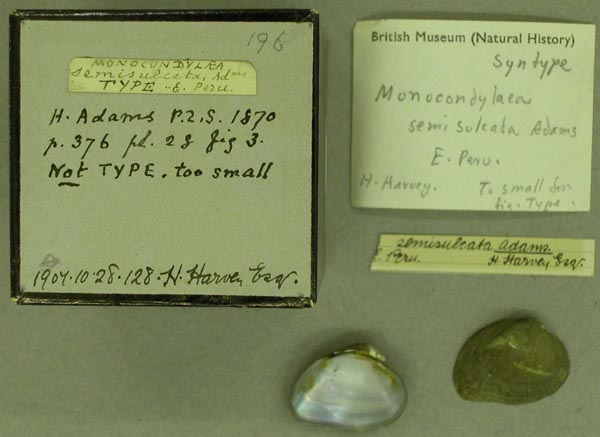 196
MONOCONDYLÆA
semisulcata, Adams
TYPE - E. Peru.
H. Adams P.Z.S. 1870
p. 376 pl. 28 fig 3.
Not TYPE. too small
1907.10.28.128. H. Harvey Esqr.
British Museum (Natural History)
Syntype
Monocondylaea
semisulcata Adams
E. Peru.
H. Harvey. To small for
fig. Type.
semisulcata Adams.
Peru. H. Harvey Esqr.